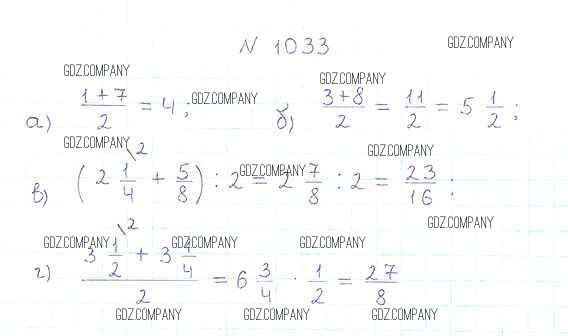 N 1033
GDZ.COMPANY
GDZ.COMPANY
GDZ.COMPANY
а) (1+7)/2 = 4; GDZ.COMPANY б) (3+8)/2 = 11/2 = 5 1/2;
GDZ.COMPANY
GDZ.COMPANY
в) (2 1/4 \2 + 5/8) : 2 = 2 7/8 : 2 = 23/16;
GDZ.COMPANY
GDZ.COMPANY
GDZ.COMPANY GDZ.COMPANY GDZ.COMPANY
г) (3 1/2 \2 + 3 1/4)/2 = 6 3/4 · 1/2 = 27/8
GDZ.COMPANY GDZ.COMPANY GDZ.COMPANY